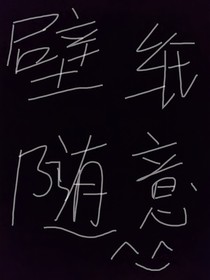 壁纸
随意
^_^